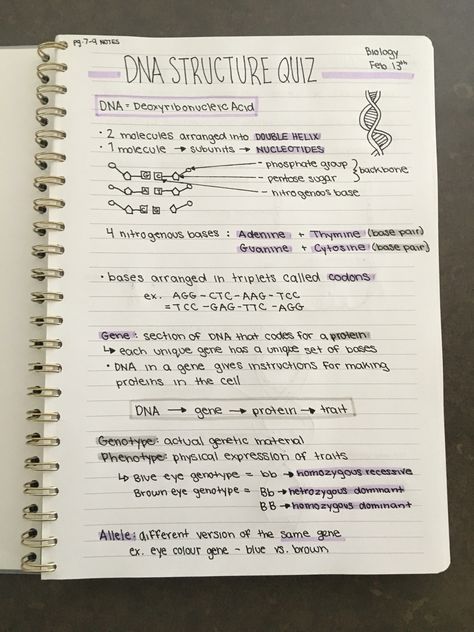 pg. 7-9 NOTES
Biology
Feb 13th
DNA STRUCTURE QUIZ
DNA = Deoxyribonucleic Acid
• 2 molecules arranged into DOUBLE HELIX
• 1 molecule → subunits → NUCLEOTIDES
phosphate group
pentose sugar } backbone
nitrogenous base
G C
A T
C G
4 nitrogenous bases : Adenine + Thymine (base pair)
Guanine + Cytosine (base pair)
• bases arranged in triplets called codons
ex. AGG - CTC - AAG - TCC
= TCC - GAG - TTC - AGG
Gene : section of DNA that codes for a protein
↳ each unique gene has a unique set of bases
• DNA in a gene gives instructions for making
proteins in the cell
DNA → gene → protein → trait
Genotype: actual genetic material
Phenotype: physical expression of traits
↳ Blue eye genotype = bb → homozygous recessive
Brown eye genotype = Bb → hetrozygous dominant
BB → homozygous dominant
Allele: different version of the same gene
ex. eye colour gene - blue vs. brown